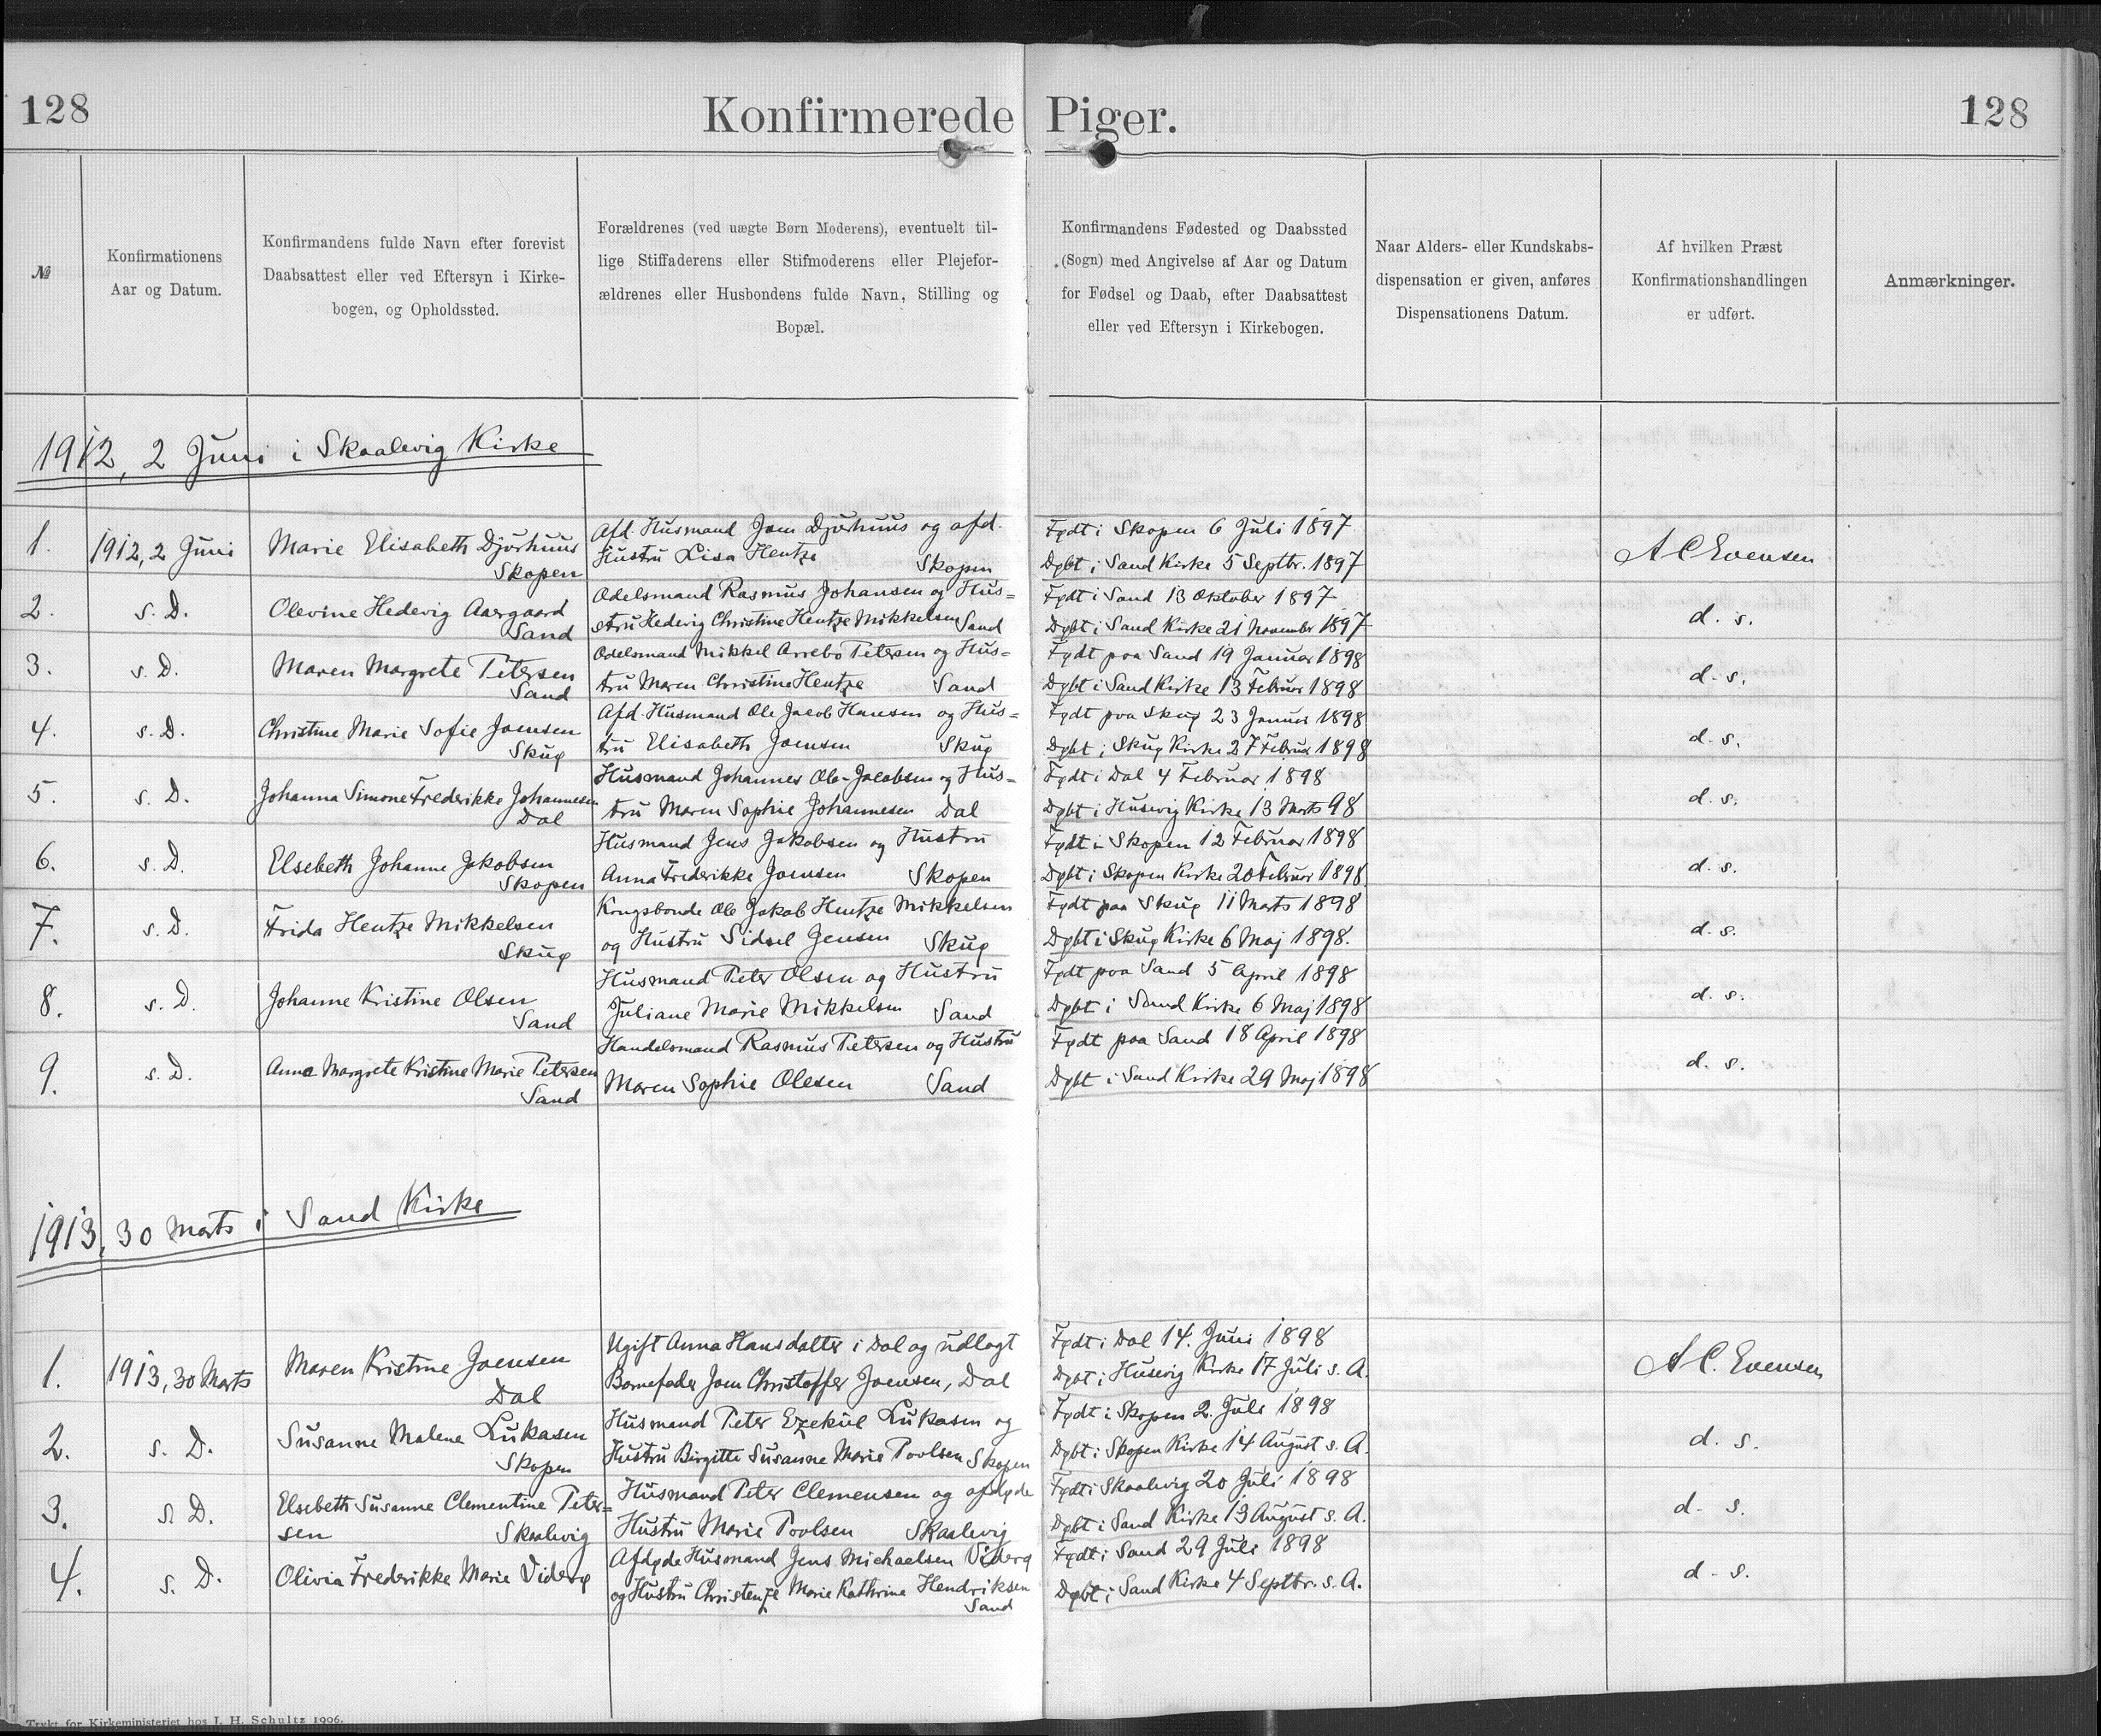 128
Konfirmerede Piger.
128
№
Konfirmationens
Aar og Datum.
Konfirmandens fulde Navn efter forevist
Daabsattest eller ved Eftersyn i Kirke-
bogen, og Opholdssted.
Forældrenes (ved uægte Børn Moderens), eventuelt til-
lige Stiffaderens eller Stifmoderens eller Plejefor-
ældrenes eller Husbondens fulde Navn, Stilling og
Bopæl.
Konfirmandens Fødested og Daabssted
(Sogn) med Angivelse af Aar og Datum
for Fødsel og Daab, efter Daabsattest
eller ved Eftersyn i Kirkebogen.
Naar Alders- eller Kundskabs-
dispensation er given, anføres
Dispensationens Datum.
Af hvilken Præst
Konfirmationshandlingen
er udført.
Anmærkninger.
1912, 2 Juni i Skaalevig Kirke
1.
1912, 2 Juni
Marie Elisabeth Djurhuus
Skopen
Afd. Husmand Joen Djurhuus og afd.
Hustru Lisa Hentze Skopen
Født i Skopen 6 Juli 1897
Døbt i Sand Kirke 5 Septbr. 1897
A C Evensen
2.
s. D.
Olevine Hedevig Aargaard
Sand
Odelsmand Rasmus Johansen og Hus=
stru Hedevig Christine Hentze Mikkelsen Sand
Født i Sand 13 Oktober 1897
Døbt i Sand Kirke 21 November 1897
d. s.
3.
s. D.
Maren Margrete Petersen
Sand
Odelsmand Mikkel Arrebo Petersen og Hus=
tru Maren Christine Hentze Sand
Født paa Sand 19 Januar 1898
Døbt i Sand Kirke 13 Februar 1898
d. s.
4.
s. D.
Christine Marie Sofie Joensen
Skuø
Afd. Husmand Ole Jacob Hansen og Hus=
tru Elisabeth Joensen Skuø
Født paa Skuø 23 Januar 1898
Døbt i Skuø Kirke 27 Februar 1898
d. s.
5.
s. D.
Johanna Simone Frederikke Johannesen
Dal
Husmand Johannes Ole-Jacobsen og Hus=
tru Maren Sophie Johannesen Dal
Født i Dal 4 Februar 1898
Døbt i Husevig Kirke 13 Marts 98
d. s.
6.
s. D.
Elsebeth Johanne Jakobsen
Skopen
Husmand Jens Jakobsen og Hustru
Anna Frederikke Joensen Skopen
Født i Skopen 12 Februar 1898
Døbt i Skopen Kirke 20 Februar 1898
d. s.
7.
s. D.
Frida Hentze Mikkelsen
Skuø
Kongsbonde Ole Jakob Hentze Mikkelsen
og Hustru Sidsel Jensen Skuø
Født paa Skuø 11 Marts 1898
Døbt i Skuø Kirke 6 Maj 1898.
d. s.
8.
s. D.
Johanne Kristine Olsen
Sand
Husmand Peter Olsen og Hustru
Juliane Marie Mikkelsen Sand
Født paa Sand 5 April 1898
Døbt i Sand Kirke 6 Maj 1898
d. s.
9.
s. D.
Anna Margrete Kristine Marie Petersen
Sand
Handelsmand Rasmus Petersen og Hustru
Maren Sophie Olesen Sand
Født paa Sand 18 April 1898
Døbt i Sand Kirke 29 Maj 1898
d. s.
1913, 30 Marts i Sand Kirke
1.
1913, 30 Marts
Maren Kristine Joensen
Dal
Ugift Anna Hansdatter i Dal og udlagt
Barnefader Joen Christoffer Joensen, Dal
Født i Dal 14. Juni 1898
Døbt i Husevig Kirke 17 Juli s. A.
A C. Evensen
2.
s. D.
Susanne Malene Lukasen
Skopen
Husmand Peter Ezekiel Lukasen og
Hustru Birgitte Susanne Marie Poulsen Skopen
Født i Skopen 2. Juli 1898
Døbt i Skopen Kirke 14 August s. A.
d. s.
3.
s. D.
Elsebeth Susanne Clementine Peter=
sen Skaalevig
Husmand Peter Clemensen og afdøde
Hustru Marie Poulsen Skaalevig
Født i Skaalevig 20 Juli 1898
Døbt i Sand Kirke 13 August s. A.
d. s.
4.
s. D.
Olivia Frederikke Marie Viderø
Afdøde Husmand Jens Michaelsen Viderø
og Hustru Christenze Marie Kathrine Hendriksen
Sand
Født i Sand 29 Juli 1898
Døbt i Sand Kirke 4 Septbr. s. A.
d. s.
Trykt for Kirkeministeriet hos J. H. Schultz 1906.